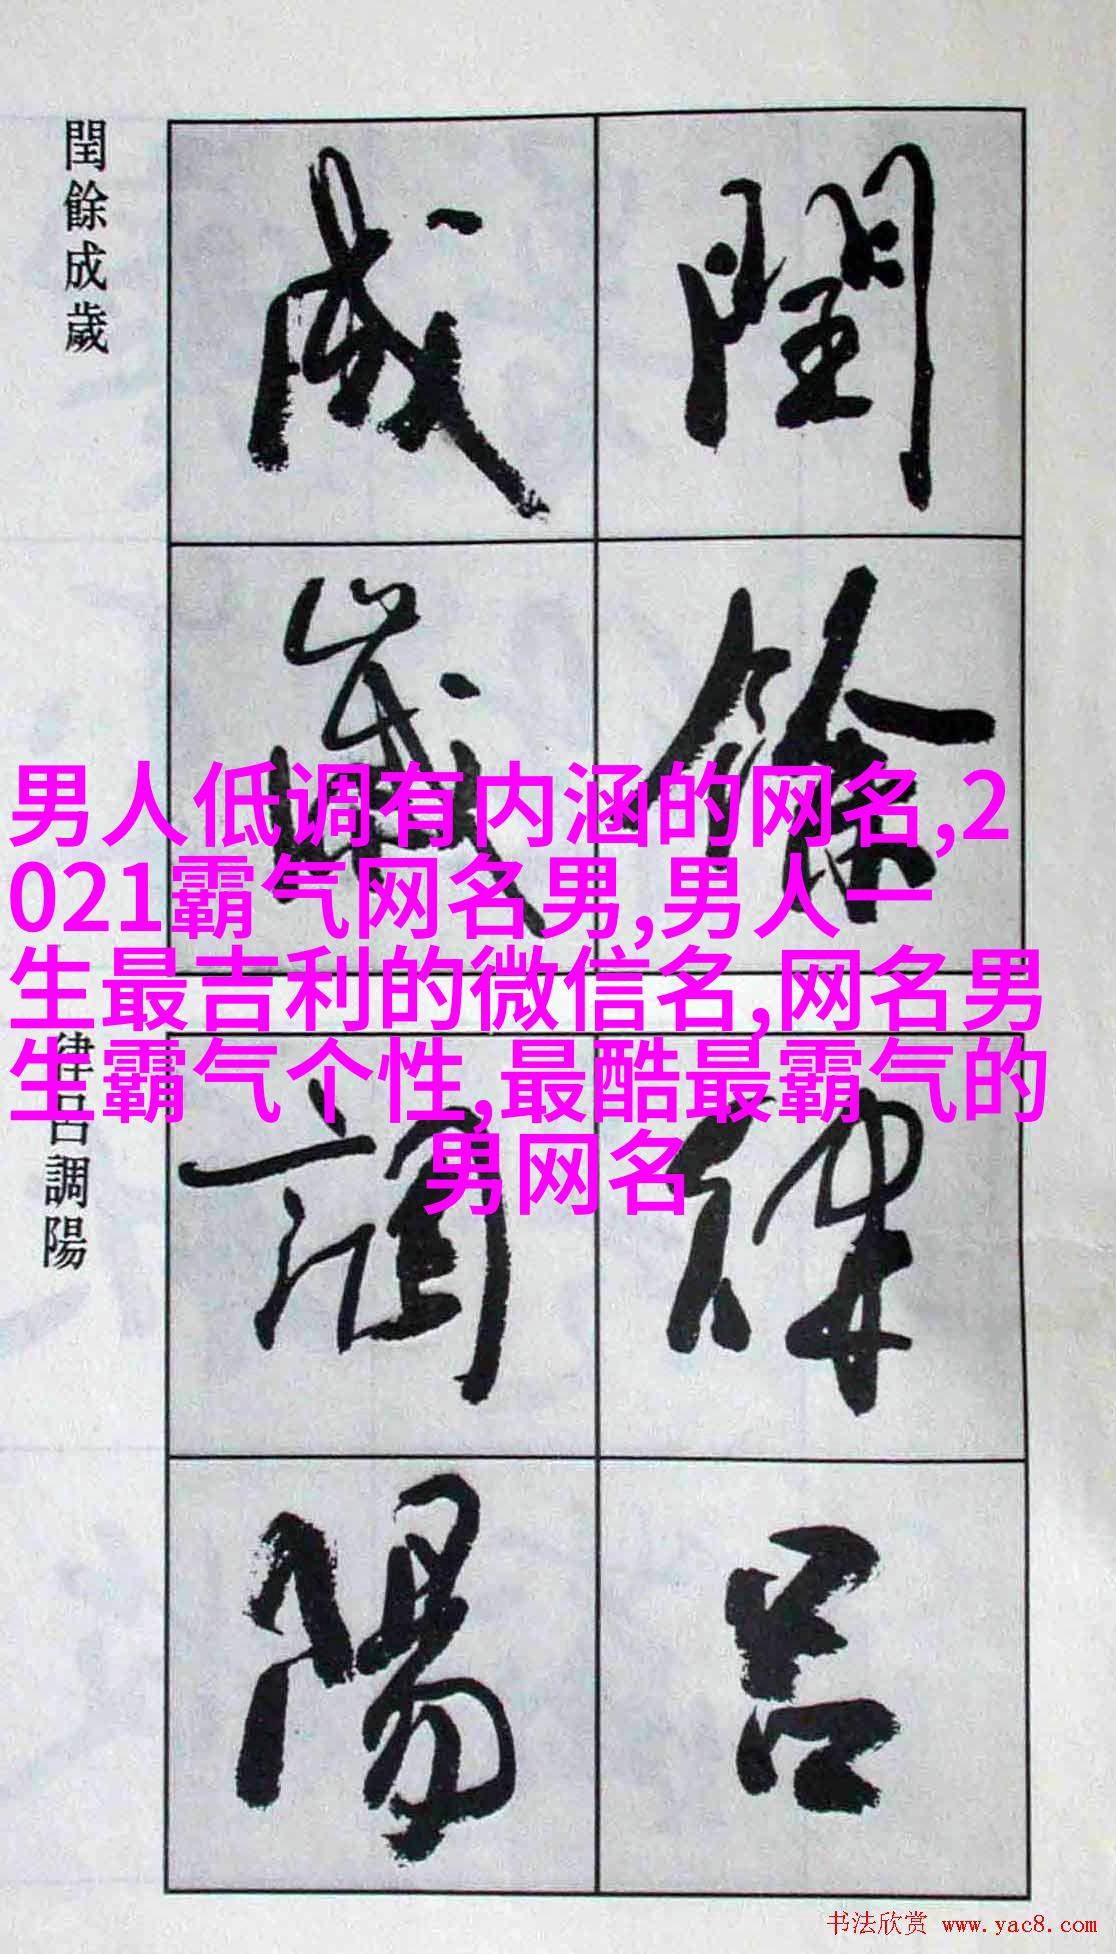 閏餘成歲
閏餘
成歲
男人低调有内涵的网名,2
021霸气网名男,男人一
生最吉利的微信名,网名男
生霸气个性,最酷最霸气的
男网名
律呂調陽
律呂
調陽
书法欣赏 www.yac8.com